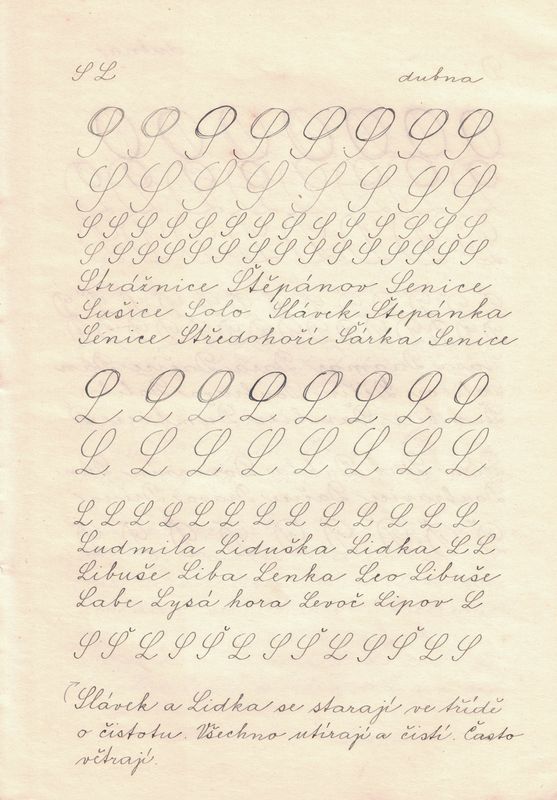 S L dubna
S S S S S S S S
S S S S S S S S
S S S S S S S S S S S S S S
S S S S S S Š Š Š Š Š Š Š Š Š
Strážnice Štěpánov Senice
Sušice Solo Slávek Štěpánka
Senice Středohoří Šárka Senice
L L L L L L L L
L L L L L L L L
L L L L L L L L L L L L L
Ludmila Liduška Lidka L L
Libuše Liba Lenka Leo Libuše
Labe Lysá hora Levoč Lipov L
S Š L S Š L S Š L S Š L S
Slávek a Lidka se starají ve třídě
o čistotu. Všechno utírají a čistí. Často
větrají.